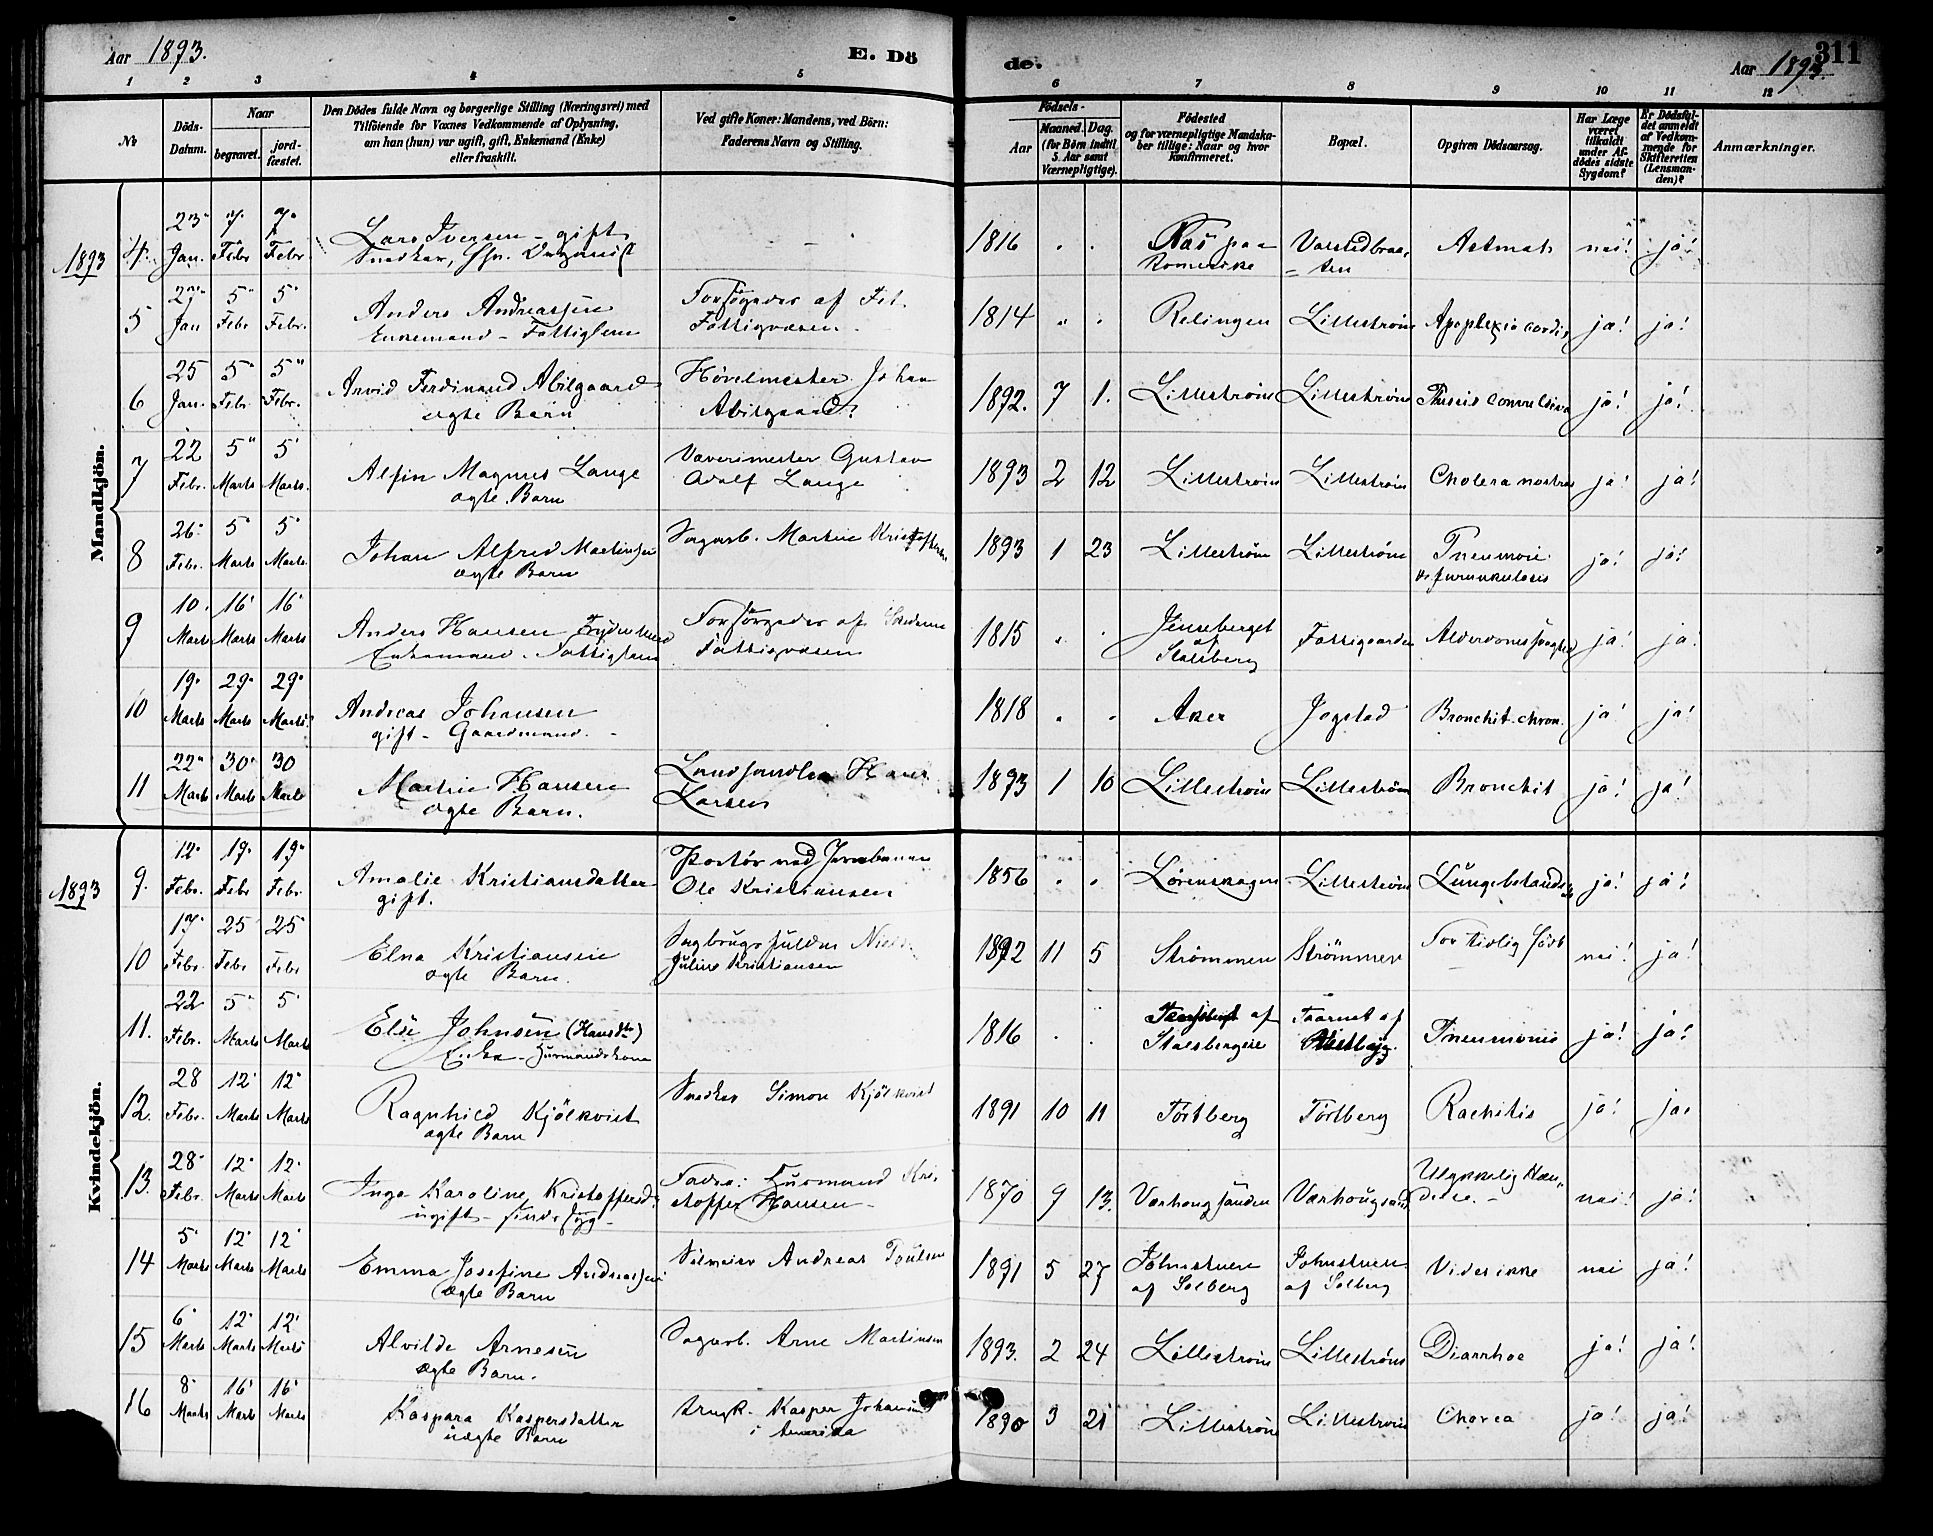 Aar 1893.
E. Dö
de.
311
Aar 1893.
1 2 3 4 5 6 7 8 9 10 11 12
No
Döds-
Datum.
Naar
begravet.
jord-
fæstet.
Den Dödes fulde Navn og borgerlige Stilling (Næringsvei) med
Tilföiende for Voxnes Vedkommende af Oplysning,
om han (hun) var ugift, gift, Enkemand (Enke)
eller fraskilt.
Ved gifte Koner: Mandens, ved Börn:
Faderens Navn og Stilling.
Födsels-
Aar
Maaned. Dag.
(for Börn indtil
5. Aar samt
Værnepligtige).
Födested
og for værnepligtige Mandska-
ber tillige: Naar og hvor
konfirmeret.
Bopæl.
Opgiven Dödsaarsag.
Har Læge
været
tilkaldt
under Af-
dödes sidste
Sygdom?
Er Dödsfal-
det anmeldt
af Vedkom-
mende for
Skifteretten
(Lensman-
den)?
Anmærkninger.
Mandkjön.
1893
4. 23 Jan. 7. Febr 7. Febr.
Lars Iversen - gift
Snedker,
1816 Næs paa
Romerike
Astmah nei! ja!
5 27 Jan 5 Febr 5 Febr.
Anders Andreassen
Enkemand - Fattiglem
Forsörgedes af Fet
Fattigvæsen.
1814 Relingen Lilleström Apoplexia cordis ja! ja!
6 25 Jan. 5 Febr 5 Febr.
Arvid Ferdinand Abilgaard
ægte Barn
Hövelmester Johan
Abilgaard.
1892. 7 1. Lilleström Lilleström Tussis convulsiva ja! ja!
7 22 Febr. 5 Marts 5 Marts.
Alfin Magnus Lange
ægte Barn
Væverimester Gustav
Adolf Lange
1893 2 12 Lilleström Lilleström Cholera nostras ja! ja!
8 26 Febr. 5 Marts 5 Marts
Johan Alfred Martinsen
ægte Barn
Sagarb. Martin Kristoffersen
1893 1 23 Lilleström Lilleström Pneumoni
furunkulosis ja! ja!
9 10. Marts 16 Marts 16 Marts
Anders Hansen
Enkemand. Fattiglem
Forsörgedes af
Fattigvæsen
1815 Jenseberget
af
Stalsberg
Fattiggaarden Alderdomssvaghed ja! ja!
10 19. Marts 29. Marts 29. Marts
Andreas Johansen
gift - Gaardmand. -
1818 Aker Jogstad Bronchit. chron. ja! ja!
11 22 Marts 30 Marts 30 Marts
Martin Hansen
ægte Barn.
Landhandler Hans
Larsen
1893 1 10 Lilleström Lilleström Bronchit ja! ja!
Kvindekjön.
1893
9. 12 Febr. 19 Febr 19 Febr
Amalie Kristiansdatter
gift.
Portör ved Jernbanen
Ole Kristiansen
1856 Lörenskogen Lilleström ja! ja!
10 17 Febr. 25 Febr 25 Febr
Elna Kristiansen
ægte Barn.
Julius Kristiansen
1892 11 5 Strömmen Strömmen For tidlig födt nei! ja!
11. 22 Febr. 5 Marts 5 Marts
Else Johnsen (Hansdtr)
Enke - Husmandskone
1816 af
Stalsberg
Taarnet af
Pneumonie ja! ja!
12. 28 Febr. 12 Marts 12 Marts
Ragnhild Kjölkvist
ægte Barn
Snedker Simon Kjölkvist
1891 10 11 Törtberg Törtberg Rachitis ja! ja!
13. 28 Febr. 12 Marts 12. Marts
Inga Karoline Kristoffersd.
ugift -
Fader: Husmand Kri-
stoffer Hansen -
1870 9 13. Ulykkelig Hæn-
delse. - nei! ja!
14 5 Marts 12 Marts 12 Marts
Emma Josefine Andreassen
ægte Barn
Andreas Poulsen
1891 5 27 Johnstuen
af Solberg
Johnstuen
af Solberg
Vides ikke nei ja!
15 6 Marts 12 Marts 12 Marts
Alvilde Arnesen
ægte Barn.
Sagarb. Arne Martinsen
1893. 2 24 Lilleström Lilleström Diarrhoe ja! ja!
16 8 Marts 16 Marts 16 Marts
Kaspara Kaspersdatter
uægte Barn
Ungk. Kasper Johansen
i Amerika
1890 3 21 Lilleström Lilleström Chorea ja! ja!